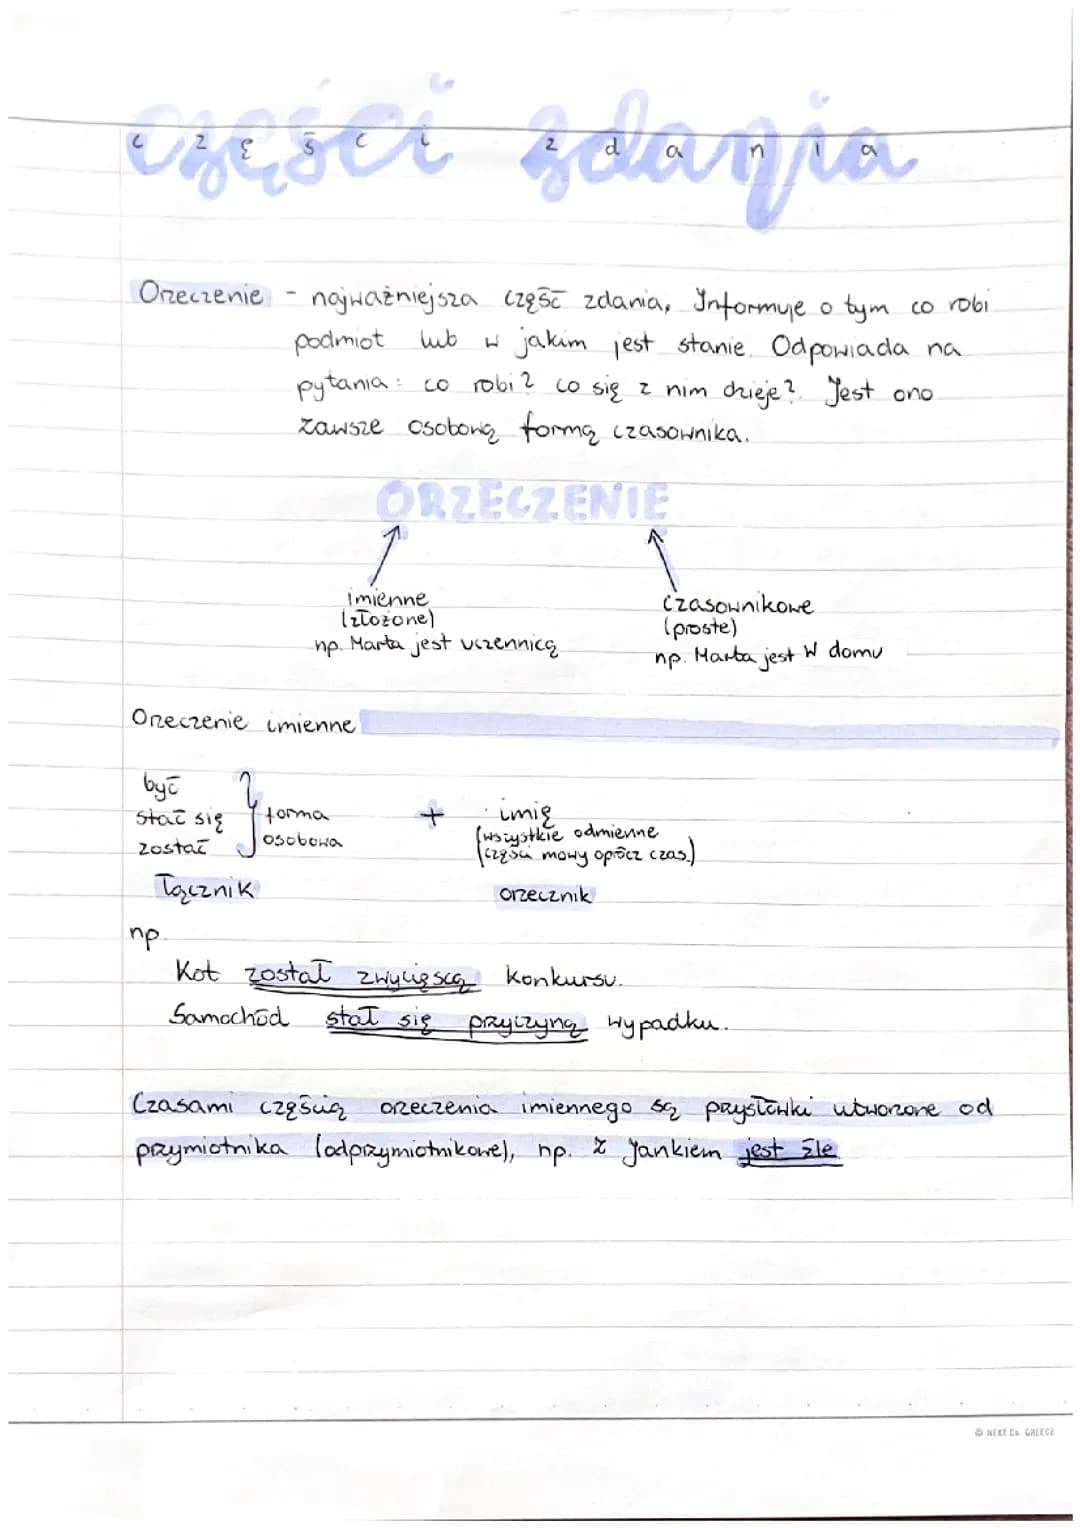 części zdania
c z ę ś c i z d a n i a
Orzeczenie - najważniejsza część zdania, Informuje o tym co robi
podmiot lub w jakim jest stanie. Odpowiada na
pytania: co robi? co się z nim dzieje? Jest ono
zawsze osobową formą czasownika.
ORZECZENIE
imienne
(złożone)
np. Marta jest uczennicą
czasownikowe
(proste)
np. Marta jest w domu
Orzeczenie imienne
być
stać się
zostać
forma
osobowa
+
imię
(wszystkie odmienne
części mowy oprócz czas.)
Łącznik
orzecznik
np.
Kot został zwycięscą konkursu.
Samochód stał się przyczyną wypadku.
Czasami częścią orzeczenia imiennego są przysłówki utworzone od
przymiotnika (odprzymiotnikowe), np. Z Jankiem jest źle
© NEXT Co. GALEGE